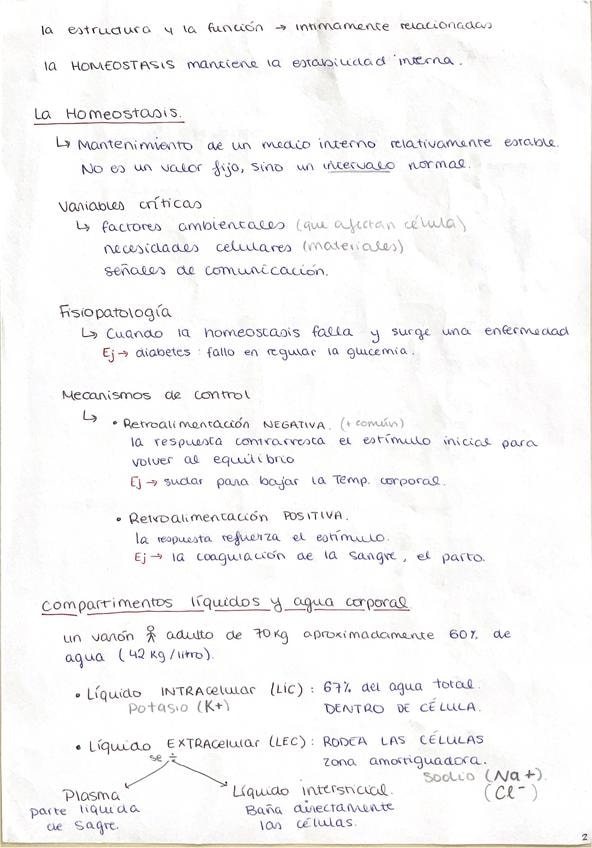 la estructura y la función → intimamente relacionadas
la HOMEOSTASIS mantiene la estabilidad interna.
La Homeostasis.
↳ Mantenimiento de un medio interno relativamente estable.
No es un valor fijo, sino un intervalo normal.
Variables críticas
↳ factores ambientales (que afectan célula)
necesidades celulares (materiales)
señales de comunicación.
Fisiopatología
↳ Cuando la homeostasis falla y surge una enfermedad
Ej → diabetes: fallo en regular la glucemia.
Mecanismos de control
↳ • Retroalimentación NEGATIVA. (+ común)
la respuesta contrarresta el estímulo inicial para
volver al equilibrio
Ej → sudar para bajar la Temp. corporal.
• Retroalimentación POSITIVA.
la respuesta refuerza el estímulo.
Ej → la coagulación de la sangre, el parto.
Compartimentos líquidos y agua corporal
un varón adulto de 70kg aproximadamente 60% de
agua (42 kg/litro).
• Líquido INTRACelular (LIC): 67% del agua total.
Potasio (K+) DENTRO DE CÉLULA.
• Líquido EXTRACelular (LEC): RODEA LAS CÉLULAS
se ÷ zona amortiguadora.
Sodio (Na+).
Plasma Líquido intersticial. (Cl-)
parte liquida Baña directamente
de sagre. las células.
2